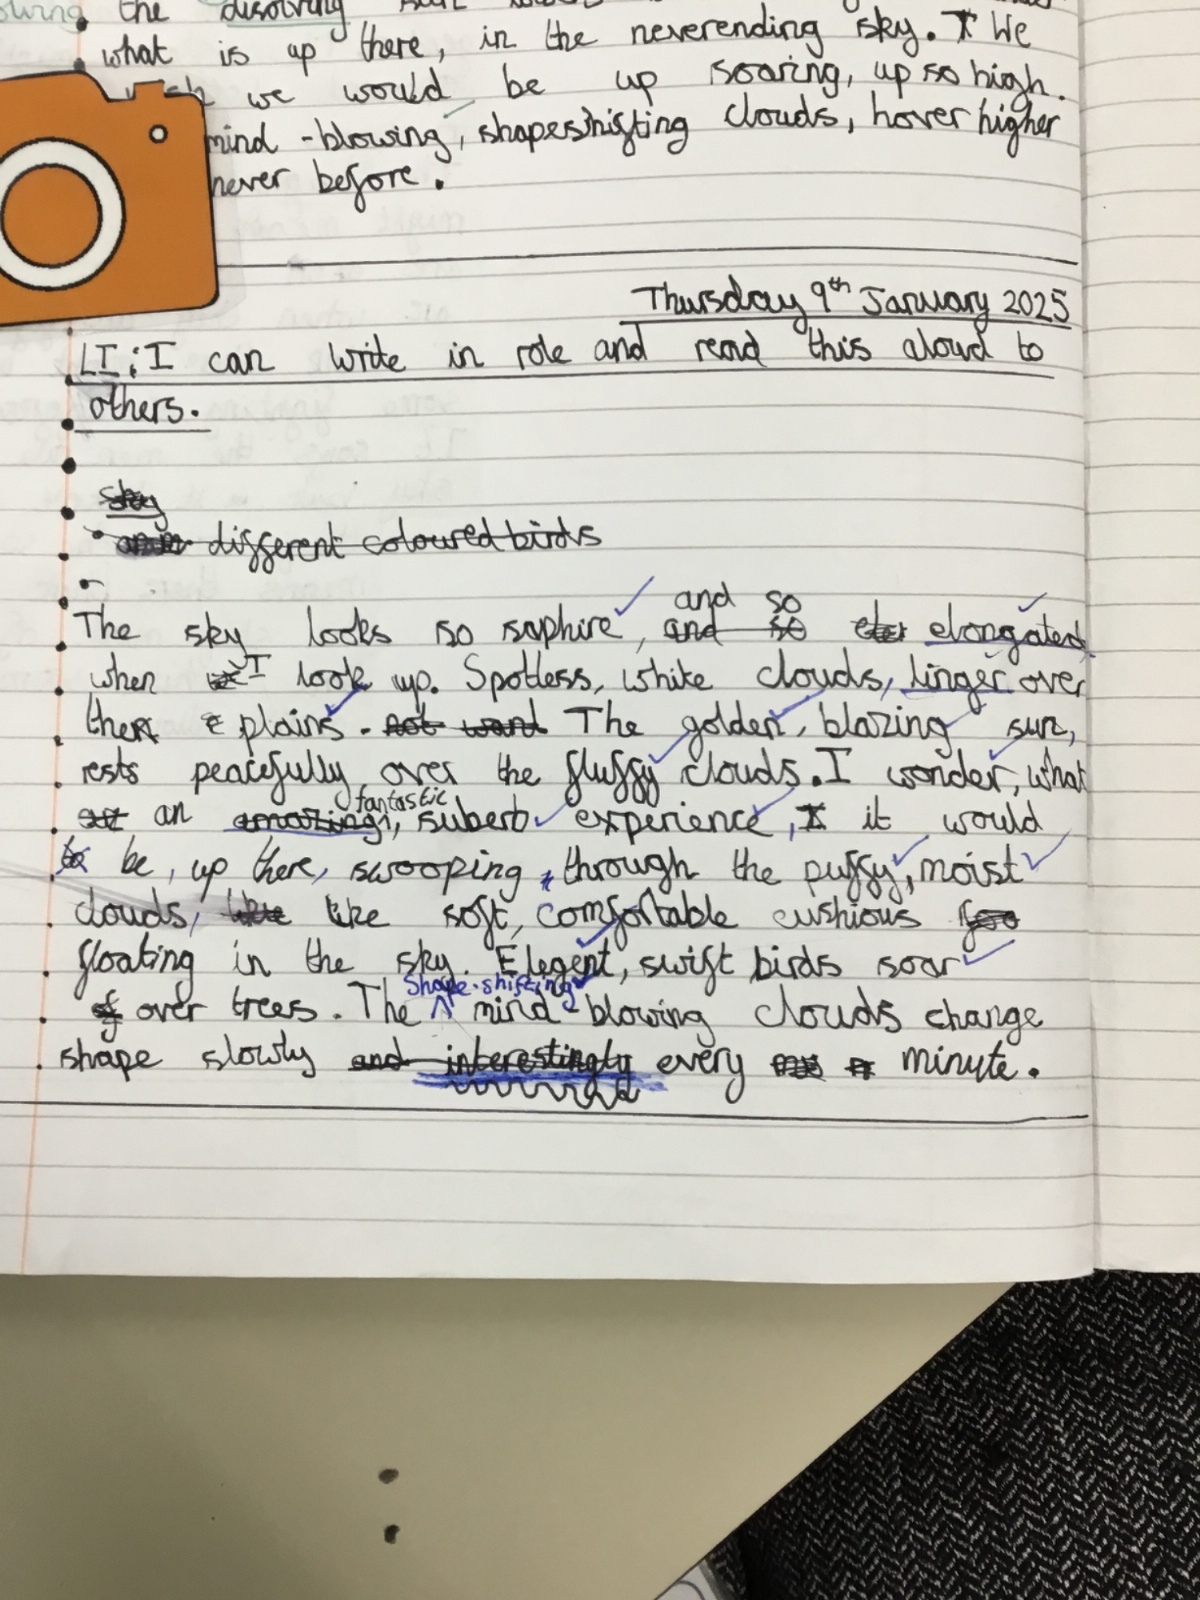 the disolving
what is up there, in the neverending sky. We
we would be up soaring, up so high.
mind-blowing, shapeshifting clouds, hover higher
never before.
Thursday 9th January 2025
LI: I can write in role and read this aloud to
others.
sky
different coloured birds
The sky looks so saphire, and so elongated
when I look up. Spotless, white clouds, linger over
the plains. not want The golden, blazing sun,
rests peacefully over the fluffy clouds. I wonder, what
an amazing, fantastic, suberb experience, it would
be, up there, swooping through the puffy, moist
clouds, like soft, comfortable cushious
floating in the sky. Elegent, swift birds soar
over trees. The shape-shifting mind-blowing clouds change
shape slowly and interestingly every minute.